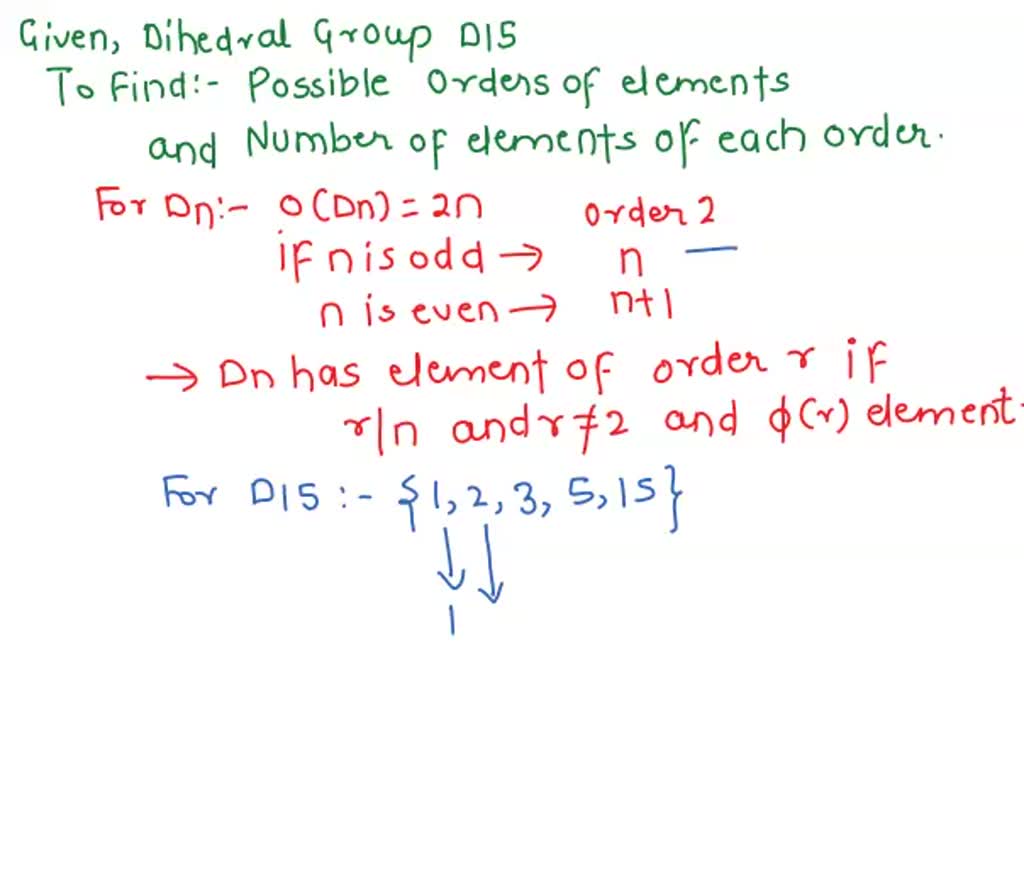 Given, Dihedral Group D15
To Find:- Possible Orders of elements
and Number of elements of each order.
For Dn:- O(Dn) = 2n order 2
if n is odd → n
n is even → n+1
→ Dn has element of order r if
r|n and r≠2 and ϕ(r) element.
For D15:- {1, 2, 3, 5, 15}
↓ ↓
1